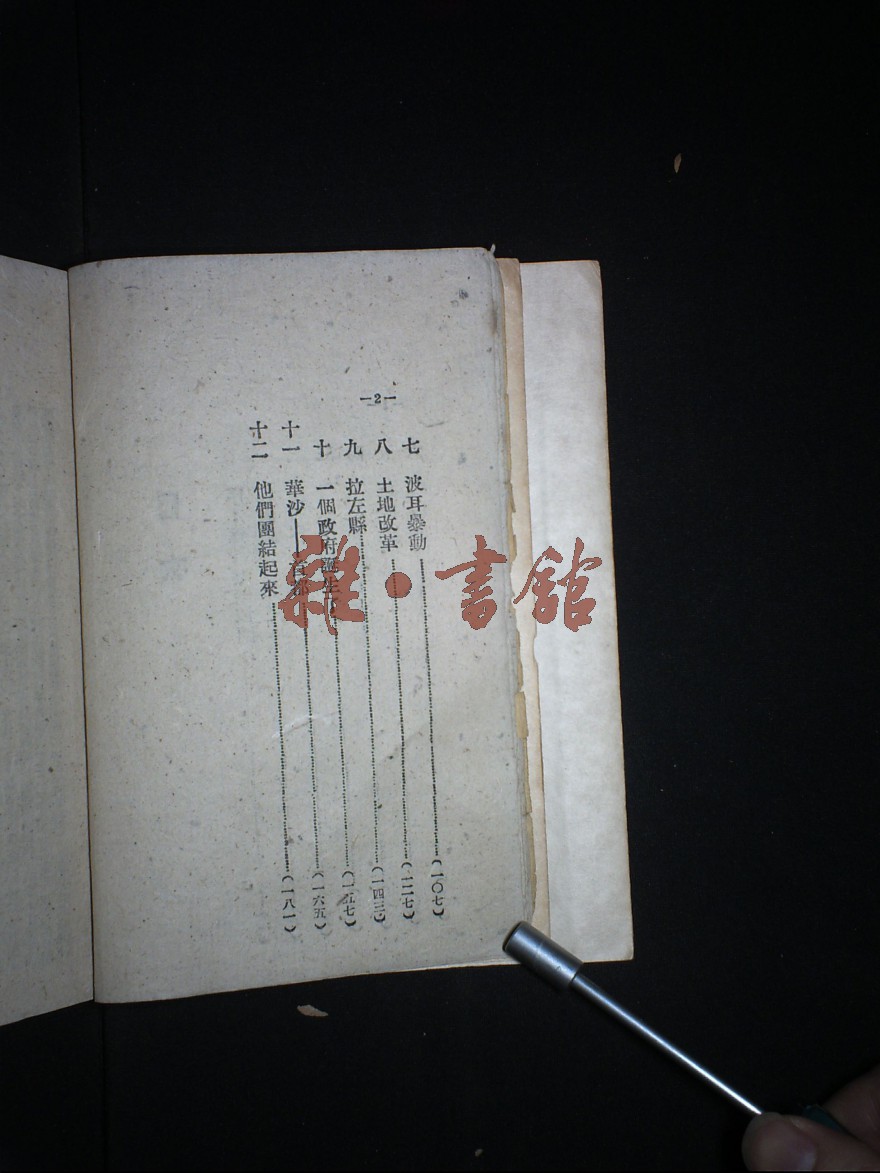 —2—
七 波耳暴動……(一〇七)
八 土地改革……(一二七)
九 拉左縣……(一四三)
十 一個政府誕生……(一五七)
十一 華沙——首都……(一六五)
十二 他們團結起來……(一八一)
雜·書館